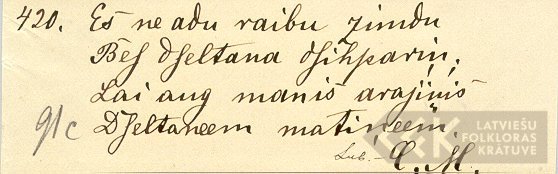 420. Es ne adu raibu zimdu
Bes dseltana dsihpariņ,
Lai aug maniš arajiņiš
91c Dseltaneem matiņeem.
Lub. - C. M.
LATVIEŠU
FOLKLORAS
KRĀTUVE